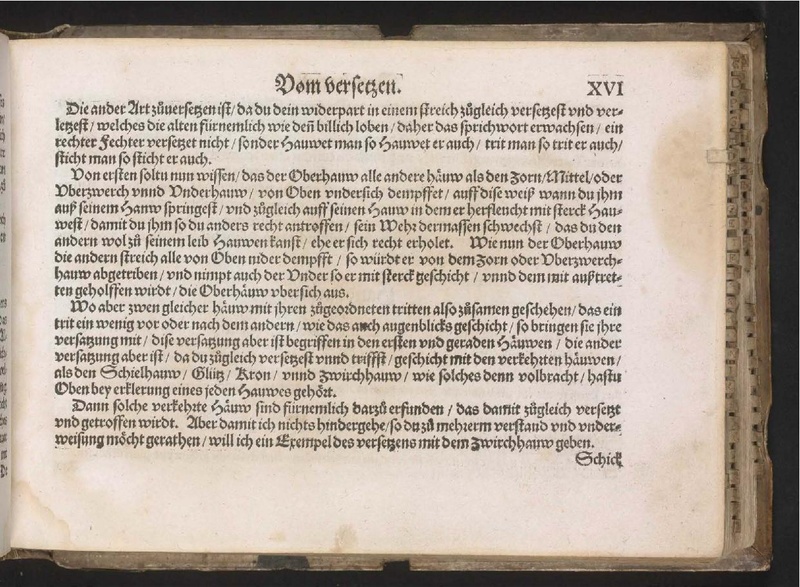 Vom versetzen.
XVI
Die ander Art zůversetzen ist/ da du dein widerpart in einem streich zůgleich versetzest vnd ver-
letzest/ welches die alten fürnemlich wie deñ billich loben/ daher das sprichwort erwachsen/ ein
rechter Fechter versetzet nicht/ sonder Hauwet man so Hauwet er auch/ trit man so trit er auch/
sticht man so sticht er auch.
Von ersten soltu nun wissen/ das der Oberhauw alle andere häuw als den Zorn/ Mittel/ oder
Vberzwerch vnnd Vnderhauw/ von Oben vndersich dempffet/ auff dise weiß wann du jhm
auß seinem Hauw springest/ vnd zůgleich auff seinen Hauw in dem er herfleucht mit sterck Hau-
west/ damit du jhm so du anders recht antroffen/ sein Wehr dermassen schwechst/ das du den
andern wol zů seinem leib Hauwen kanst/ ehe er sich recht erholet. Wie nun der Oberhauw
die andern streich alle von Oben nider dempfft/ so würdt er von dem Zorn oder Vberzwerch-
hauw abgetriben/ vnd nimpt auch der Vnder so er mit sterck geschicht/ vnnd dem mit außtret-
ten geholffen wirdt/ die Oberhäuw vbersich aus.
Wo aber zwen gleicher häuw mit jhren zůgeordneten tritten also zůsamen geschehen/ das ein
trit ein wenig vor oder nach dem andern/ wie das auch augenblicks geschicht/ so bringen sie jhre
versatzung mit/ dise versatzung aber ist begriffen in den ersten vnd geraden Häuwen/ die ander
versatzung aber ist/ da du zůgleich versetzest vnnd triffst/ geschicht mit den verkehrten häuwen/
als den Schielhauw/ Glütz/ Kron/ vnnd Zwirchhauw/ wie solches denn volbracht/ hastu
Oben bey erklerung eines jeden Hauwes gehört.
Dann solche verkehrte Häuw sind fürnemlich darzů erfunden/ das damit zůgleich versetzt
vnd getroffen wirdt. Aber damit ich nichts hindergehe/ so du zů mehrerm verstand vnd vnder-
weisung möcht gerathen/ will ich ein Exempel des versetzens mit dem Zwirchhauw geben.
Schick